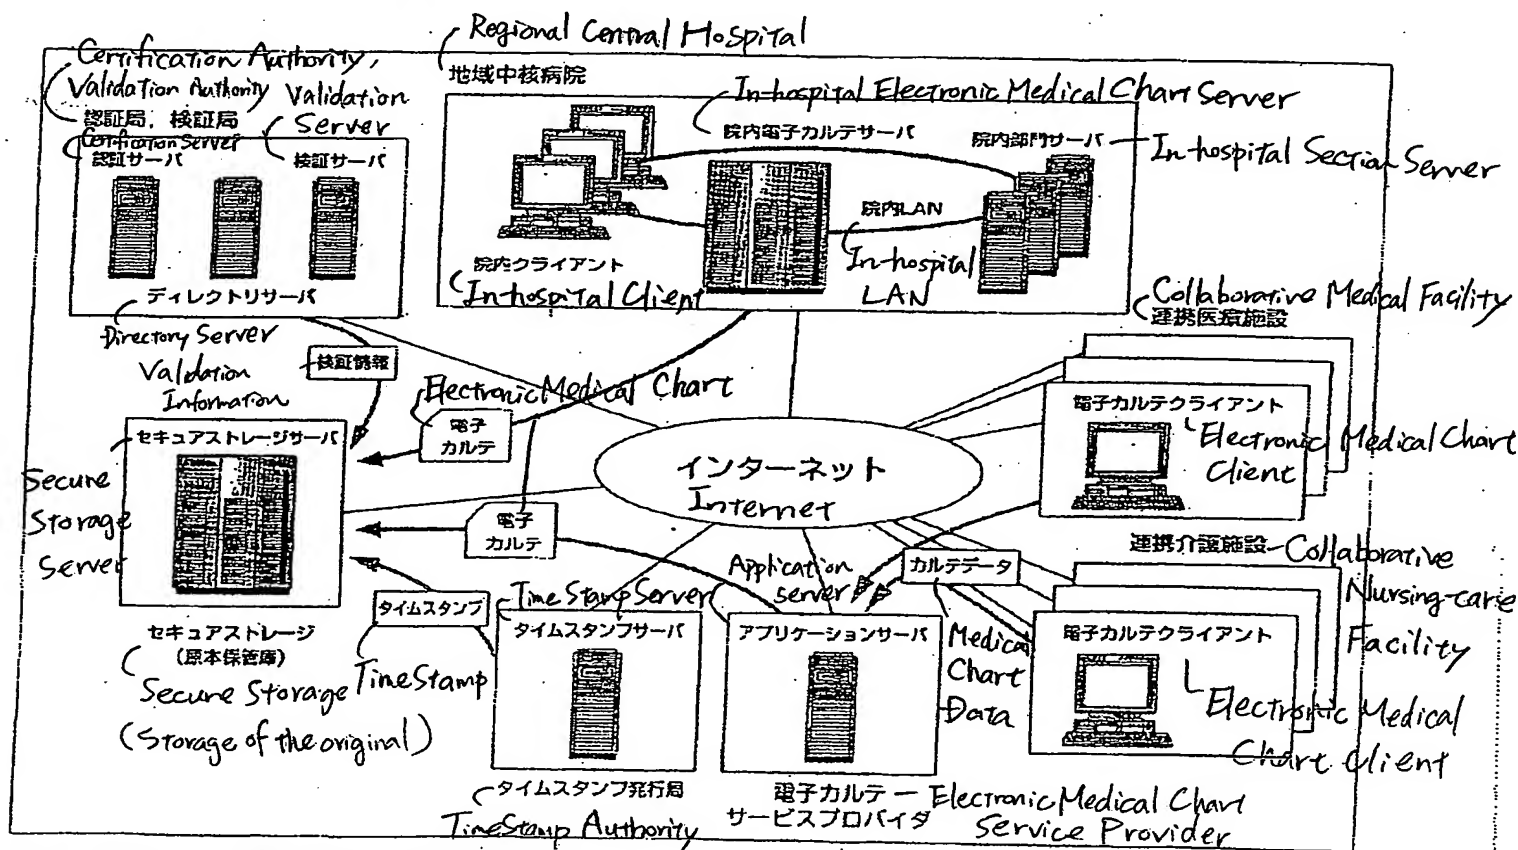 Regional Central Hospital
地域中核病院
Certification Authority,
Validation Authority
認証局，検証局
Validation
Server
Certification Server
認証サーバ
検証サーバ
ディレクトリサーバ
Directory Server
In-hospital Electronic Medical Chart Server
院内電子カルテサーバ
院内部門サーバ
In-hospital Section Server
院内LAN
In-hospital
LAN
院内クライアント
In-hospital Client
Validation
Information
検証情報
Electronic Medical Chart
電子
カルテ
Collaborative Medical Facility
連携医療施設
電子カルテクライアント
Electronic Medical Chart
Client
セキュアストレージサーバ
Secure
Storage
Server
インターネット
Internet
電子
カルテ
連携介護施設
Collaborative
Nursing-care
Facility
Application
server
カルテデータ
タイムスタンプ
Time Stamp Server
タイムスタンプサーバ
アプリケーションサーバ
Medical
Chart
Data
電子カルテクライアント
Electronic Medical
Chart Client
セキュアストレージ
（原本保管庫）
Secure Storage
(Storage of the original)
Time Stamp
タイムスタンプ発行局
Time Stamp Authority
電子カルテ
サービスプロバイダ
Electronic Medical Chart
Service Provider